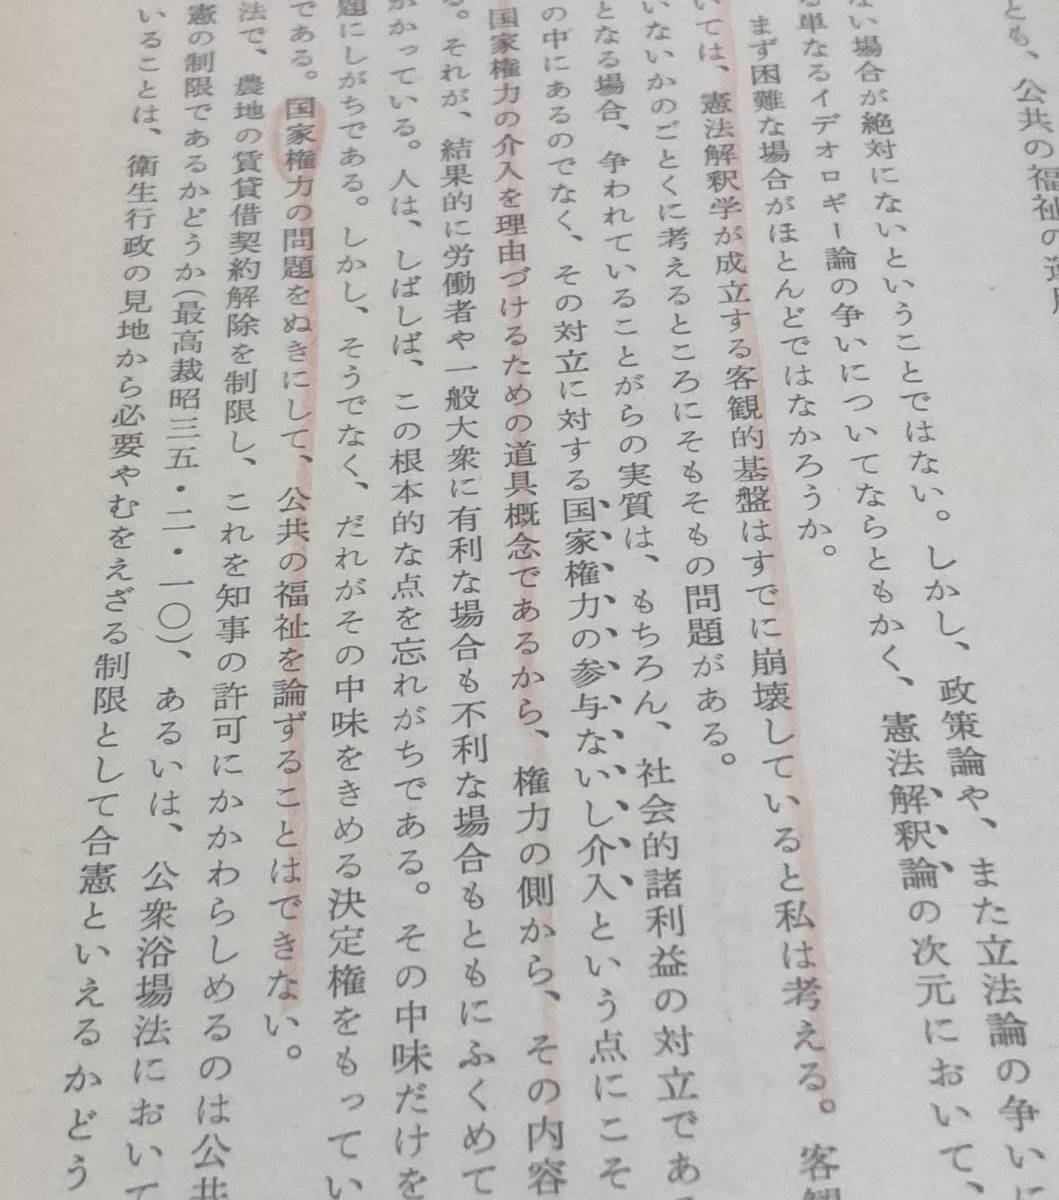 とも、公共の福祉の適用
ない場合が絶対にないということではない。しかし、政策論や、また立法論の争いに
る単なるイデオロギー論の争いについてならともかく、憲法解釈論の次元において、
まず困難な場合がほとんどではなかろうか。
いては、憲法解釈学が成立する客観的基盤はすでに崩壊していると私は考える。客観
いないかのごとくに考えるところにそもそもの問題がある。
となる場合、争われていることがらの実質は、もちろん、社会的諸利益の対立であ
の中にあるのでなく、その対立に対する国家権力の参与ないし介入という点にこそ
国家権力の介入を理由づけるための道具概念であるから、権力の側から、その内容
る。それが、結果的に労働者や一般大衆に有利な場合も不利な場合もともにふくめて
がかっている。人は、しばしば、この根本的な点を忘れがちである。その中味だけを
題にしがちである。しかし、そうでなく、だれがその中味をきめる決定権をもってい
である。国家権力の問題をぬきにして、公共の福祉を論ずることはできない。
法で、農地の賃貸借契約解除を制限し、これを知事の許可にかかわらしめるのは公共
憲の制限であるかどうか(最高裁昭三五・二・一〇)、あるいは、公衆浴場法において
いることは、衛生行政の見地から必要やむをえざる制限として合憲といえるかどう